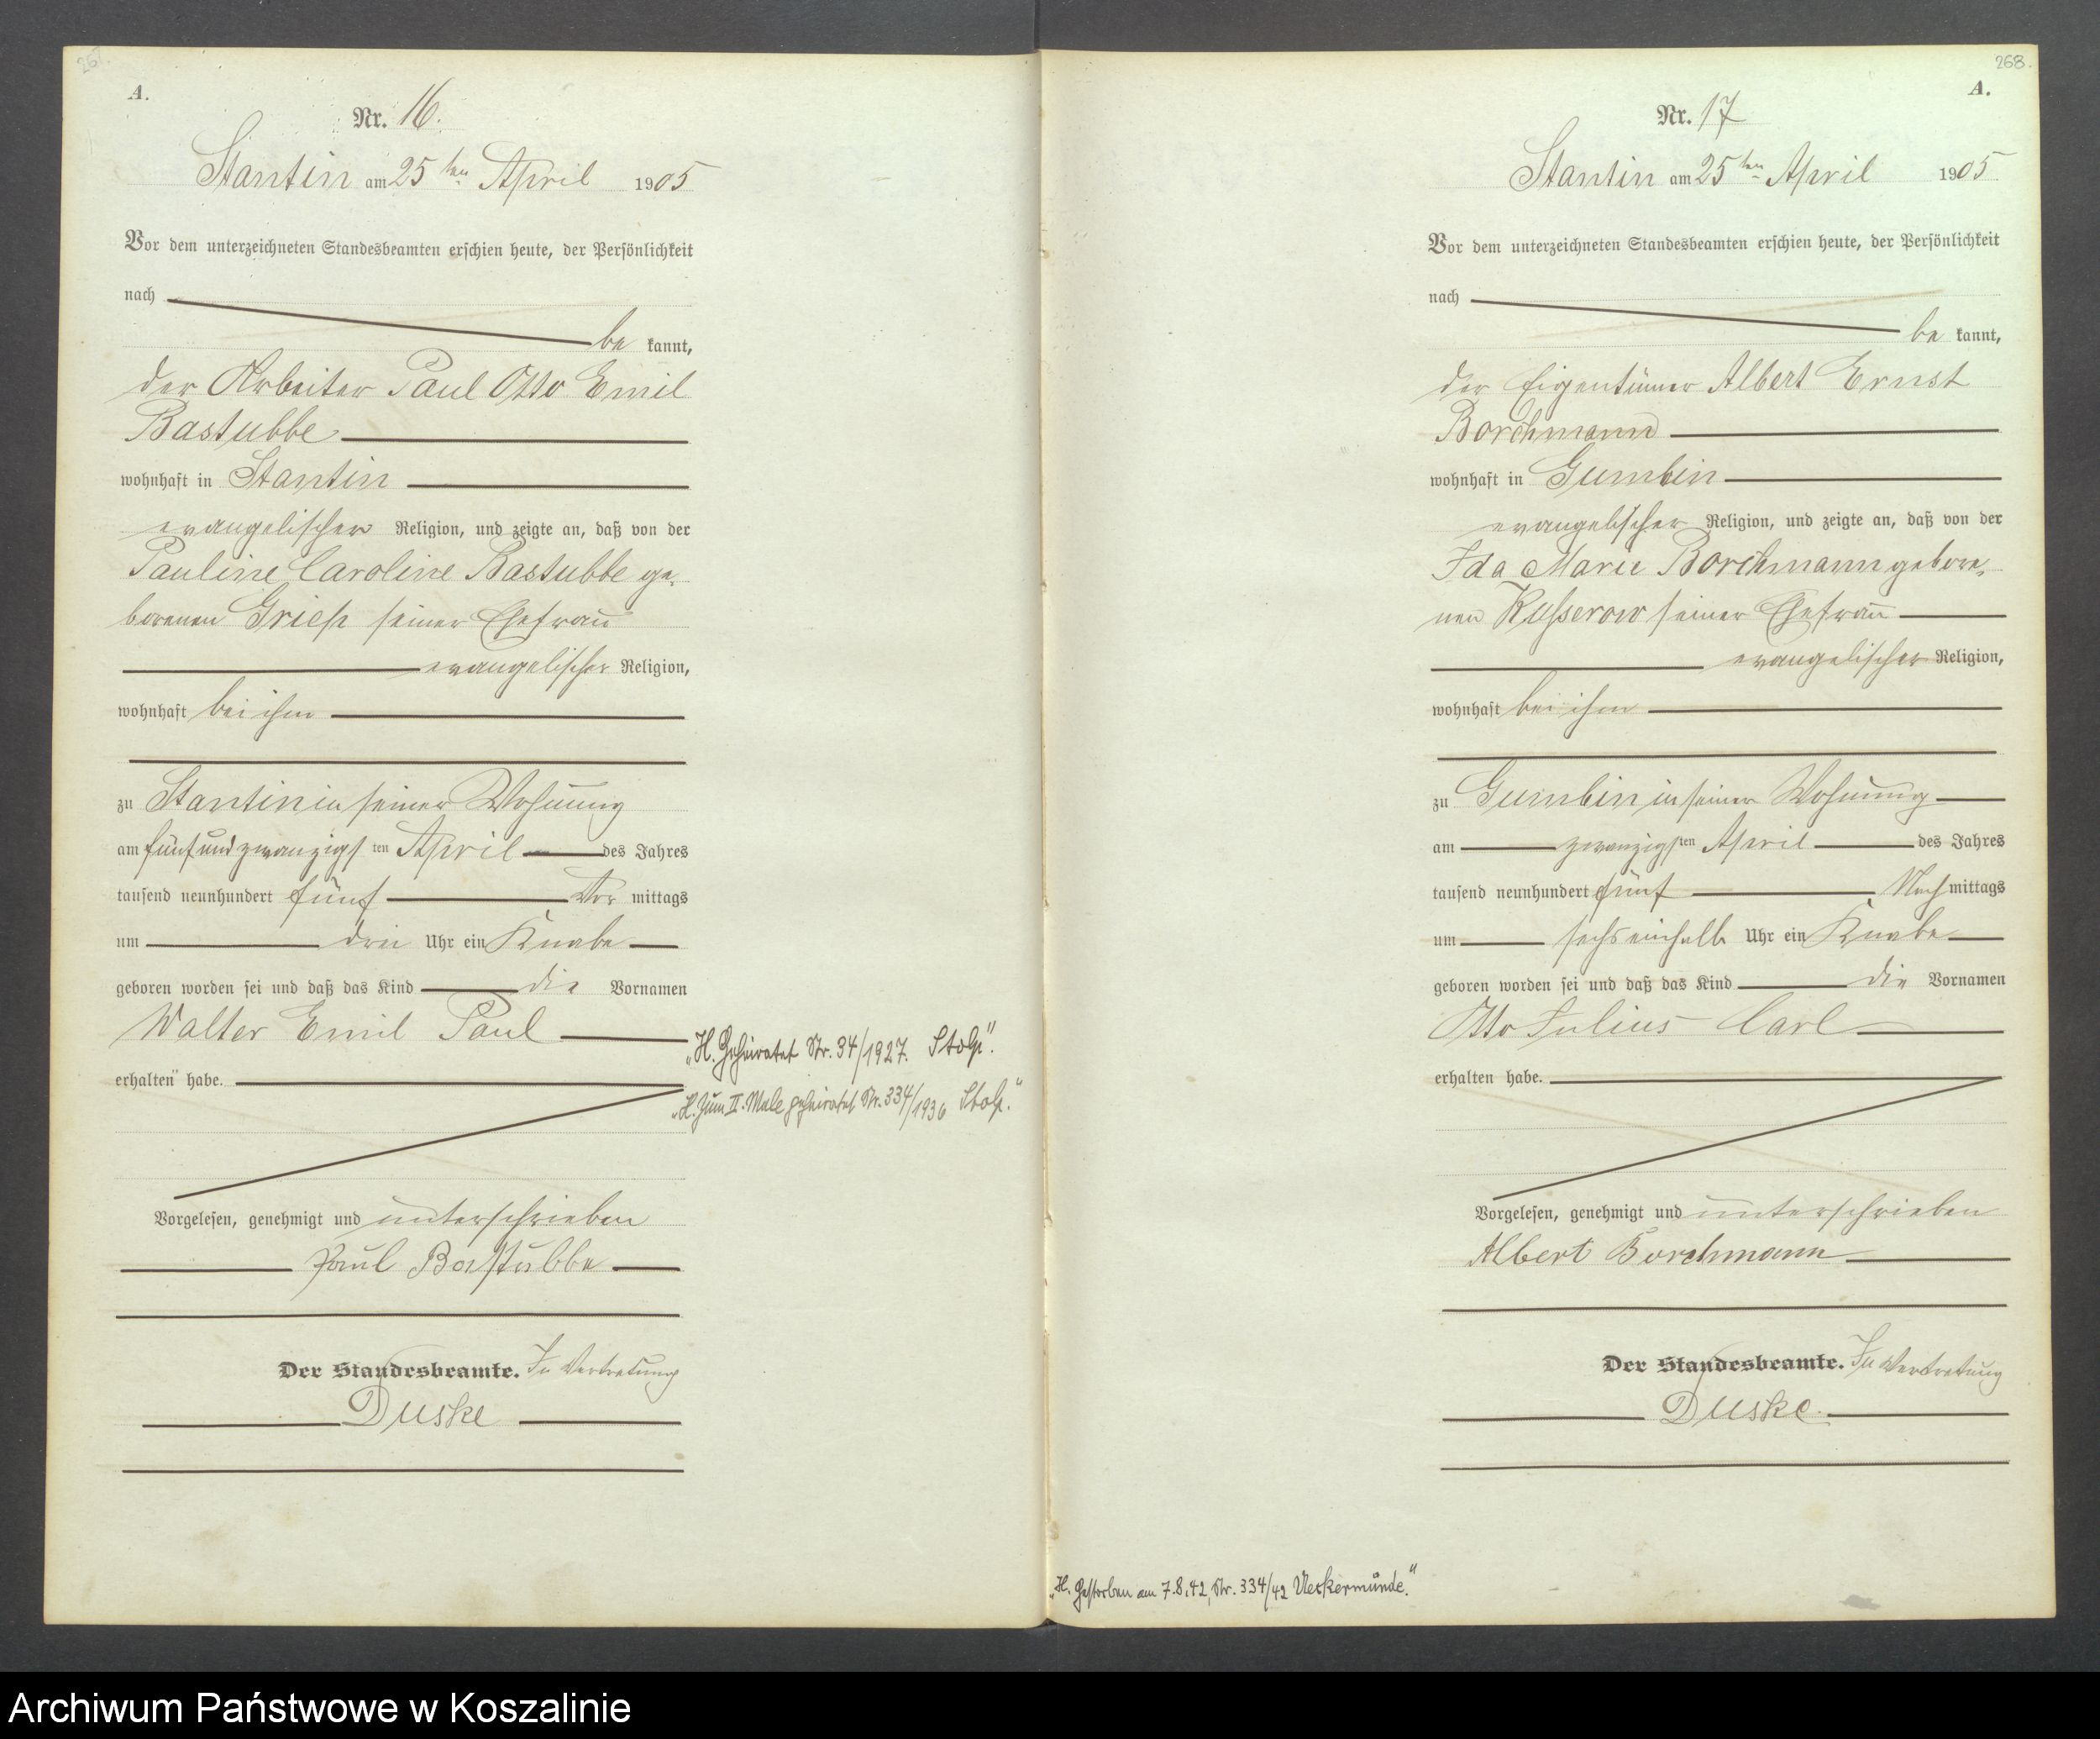 267.
A.
Nr. 16.
Stantin am 25ten April 1905
Vor dem unterzeichneten Standesbeamten erschien heute, der Persönlichkeit
nach
be kannt,
der Arbeiter Paul Otto Emil
Bastubbe
wohnhaft in Stantin
evangelischer Religion, und zeigte an, daß von der
Pauline Caroline Bastubbe ge-
borenen Griep seiner Ehefrau
evangelischer Religion,
wohnhaft bei ihm
zu Stantin in seiner Wohnung
am fünfundzwanzigsten April des Jahres
tausend neunhundert fünf Vor mittags
um drei Uhr ein Knabe
geboren worden sei und daß das Kind die Vornamen
Walter Emil Paul
erhalten habe.
„H. Geheiratet Nr. 34/1927. Stolp".
„H. Zum II. Male geheiratet Nr. 334/1936 Stolp."
Vorgelesen, genehmigt und unterschrieben
Paul Bastubbe
Der Standesbeamte. In Vertretung
Duske
268.
A.
Nr. 17
Stantin am 25ten April 1905
Vor dem unterzeichneten Standesbeamten erschien heute, der Persönlichkeit
nach
be kannt,
der Eigentümer Albert Ernst
Borchmann
wohnhaft in Gumbin
evangelischer Religion, und zeigte an, daß von der
Ida Marie Borchmann gebore-
nen Kusserow seiner Ehefrau
evangelischer Religion,
wohnhaft bei ihm
zu Gumbin in seiner Wohnung
am zwanzigsten April des Jahres
tausend neunhundert fünf Nach mittags
um sechseinhalb Uhr ein Knabe
geboren worden sei und daß das Kind die Vornamen
Otto Julius Carl
erhalten habe.
Vorgelesen, genehmigt und unterschrieben
Albert Borchmann
Der Standesbeamte. In Vertretung
Duske.
„H. Gestorben am 7.8.42, Nr. 334/42 Ueckermünde."
Archiwum Państwowe w Koszalinie